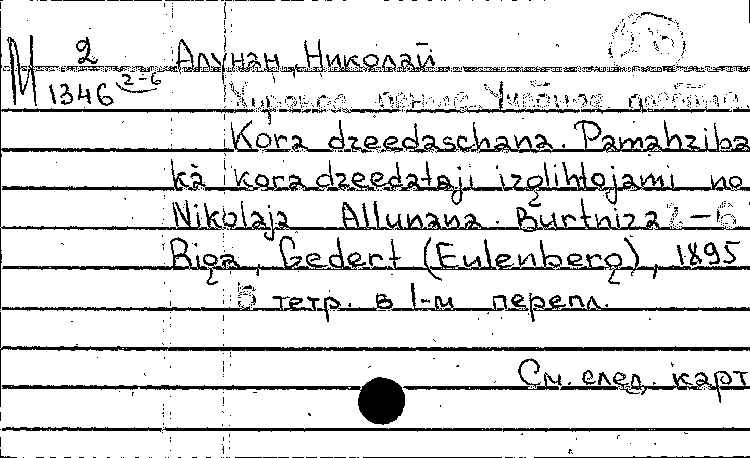 М 2 Алунан, Николай
1346 2-6 Хоровое пение. Учебное пособие
Kora dzeedaschana. Pamahziba
kà kora dzeedataji izglihtojami no
Nikolaja Allunana. Burtniza 2-6
Riga, Gedert (Eulenberg), 1895
5 тетр. в 1-м перепл.
См. след. карт